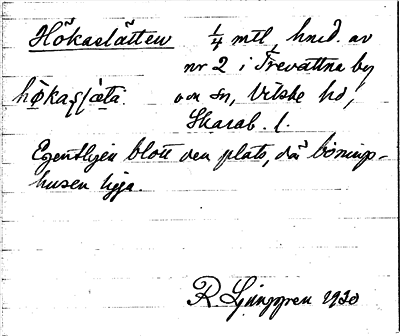 Hökaslätten ¼ mtl, hmd. av
nr 2 i Trevattna by
hø̄kaslæta. och sn, Vilske hd,
Skarab. l.
Egentligen blott den plats, där bonings-
husen ligga.
R. Ljunggren 1930